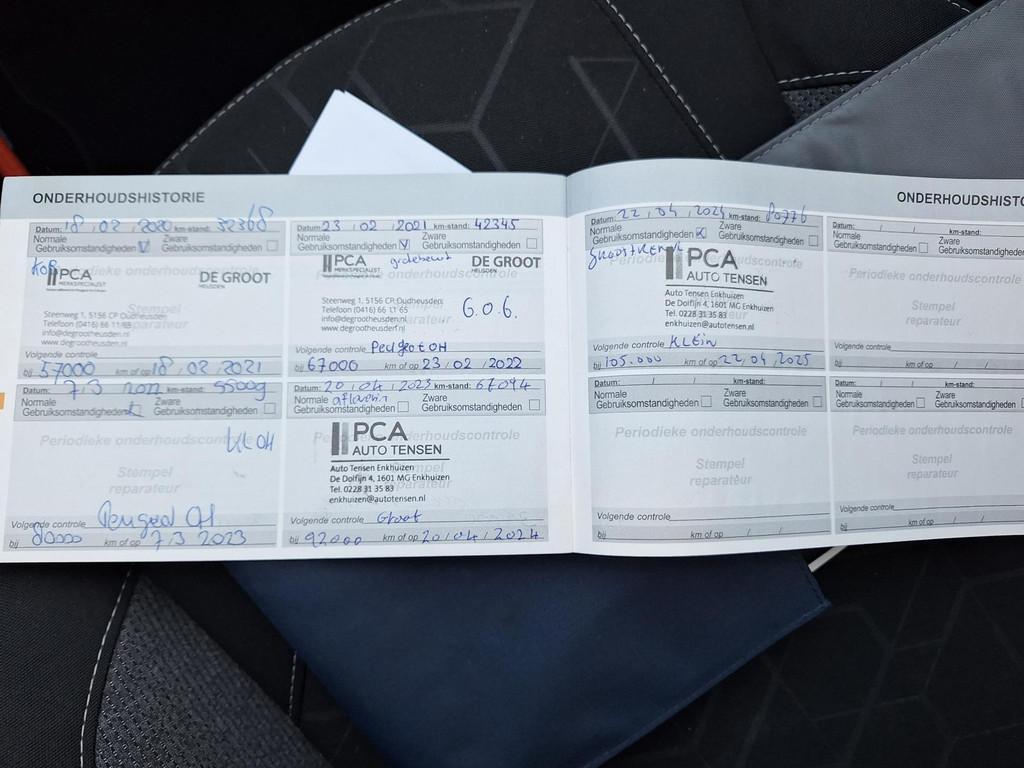 ONDERHOUDSHISTORIE
Datum: 18 / 02 / 2020 km-stand: 32368
Normale Gebruiksomstandigheden Zware Gebruiksomstandigheden
PCA MERKSPECIALIST DE GROOT HEUSDEN
Periodieke onderhoudscontrole
Stempel reparateur
Steenweg 1, 5156 CP Oudheusden
Telefoon (0416) 66 11 65
info@degrootheusden.nl
www.degrootheusden.nl
Volgende controle
bij 57000 km of op 18 / 02 / 2021
Datum: 23 / 02 / 2021 km-stand: 42345
Normale Gebruiksomstandigheden Zware Gebruiksomstandigheden
PCA MERKSPECIALIST grotebeurt DE GROOT HEUSDEN
Periodieke onderhoudscontrole
Steenweg 1, 5156 CP Oudheusden
Telefoon (0416) 66 11 65
info@degrootheusden.nl
www.degrootheusden.nl
G.O.G.
Volgende controle Peugeot OH
bij 67000 km of op 23 / 02 / 2022
Datum: 7/3 km-stand:
Normale Gebruiksomstandigheden Zware Gebruiksomstandigheden
Periodieke onderhoudscontrole
KL OH
Stempel reparateur
Volgende controle Peugeot OH
bij 80000 km of op 7/3 2023
Datum: 20 / 04 / 2023 km-stand: 67094
Normale Gebruiksomstandigheden Zware Gebruiksomstandigheden
Periodieke onderhoudscontrole
PCA AUTO TENSEN
Auto Tensen Enkhuizen
De Dolfijn 4, 1601 MG Enkhuizen
Tel. 0228 31 35 83
enkhuizen@autotensen.nl
Volgende controle Groot
bij 92000 km of op 20 / 04 / 2024
ONDERHOUDSHISTO
Datum: 22 / 04 / 2024 km-stand: 80776
Normale Gebruiksomstandigheden Zware Gebruiksomstandigheden
Periodieke onderhoudscontrole
PCA AUTO TENSEN
Auto Tensen Enkhuizen
De Dolfijn 4, 1601 MG Enkhuizen
Tel. 0228 31 35 83
enkhuizen@autotensen.nl
Volgende controle KLEIN
bij 105.000 km of op 22 / 04 / 2025
Datum: / / km-stand:
Normale Gebruiksomstandigheden Zware Gebruiksomstandig
Periodieke onderhoudscontrole
Stempel reparateur
Volgende controle
bij km of op / /
Datum: / / km-stand:
Normale Gebruiksomstandigheden Zware Gebruiksomstandigheden
Periodieke onderhoudscontrole
Stempel reparateur
Volgende controle
bij km of op / /
Datum: / / km-stand:
Normale Gebruiksomstandigheden Zware Gebruiksomstandigheden
Periodieke onderhoudscontrole
Stempel reparateur
Volgende controle
bij km of op / /